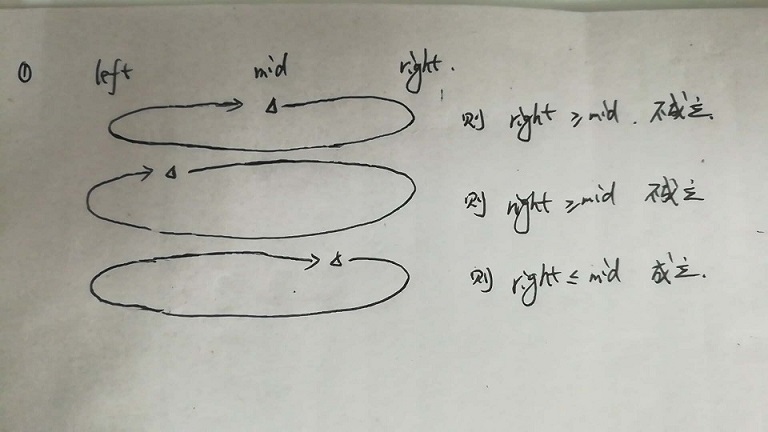 ① left mid right.
则 right ≥ mid. 不成立.
则 right ≥ mid 不成立
则 right ≤ mid 成立.